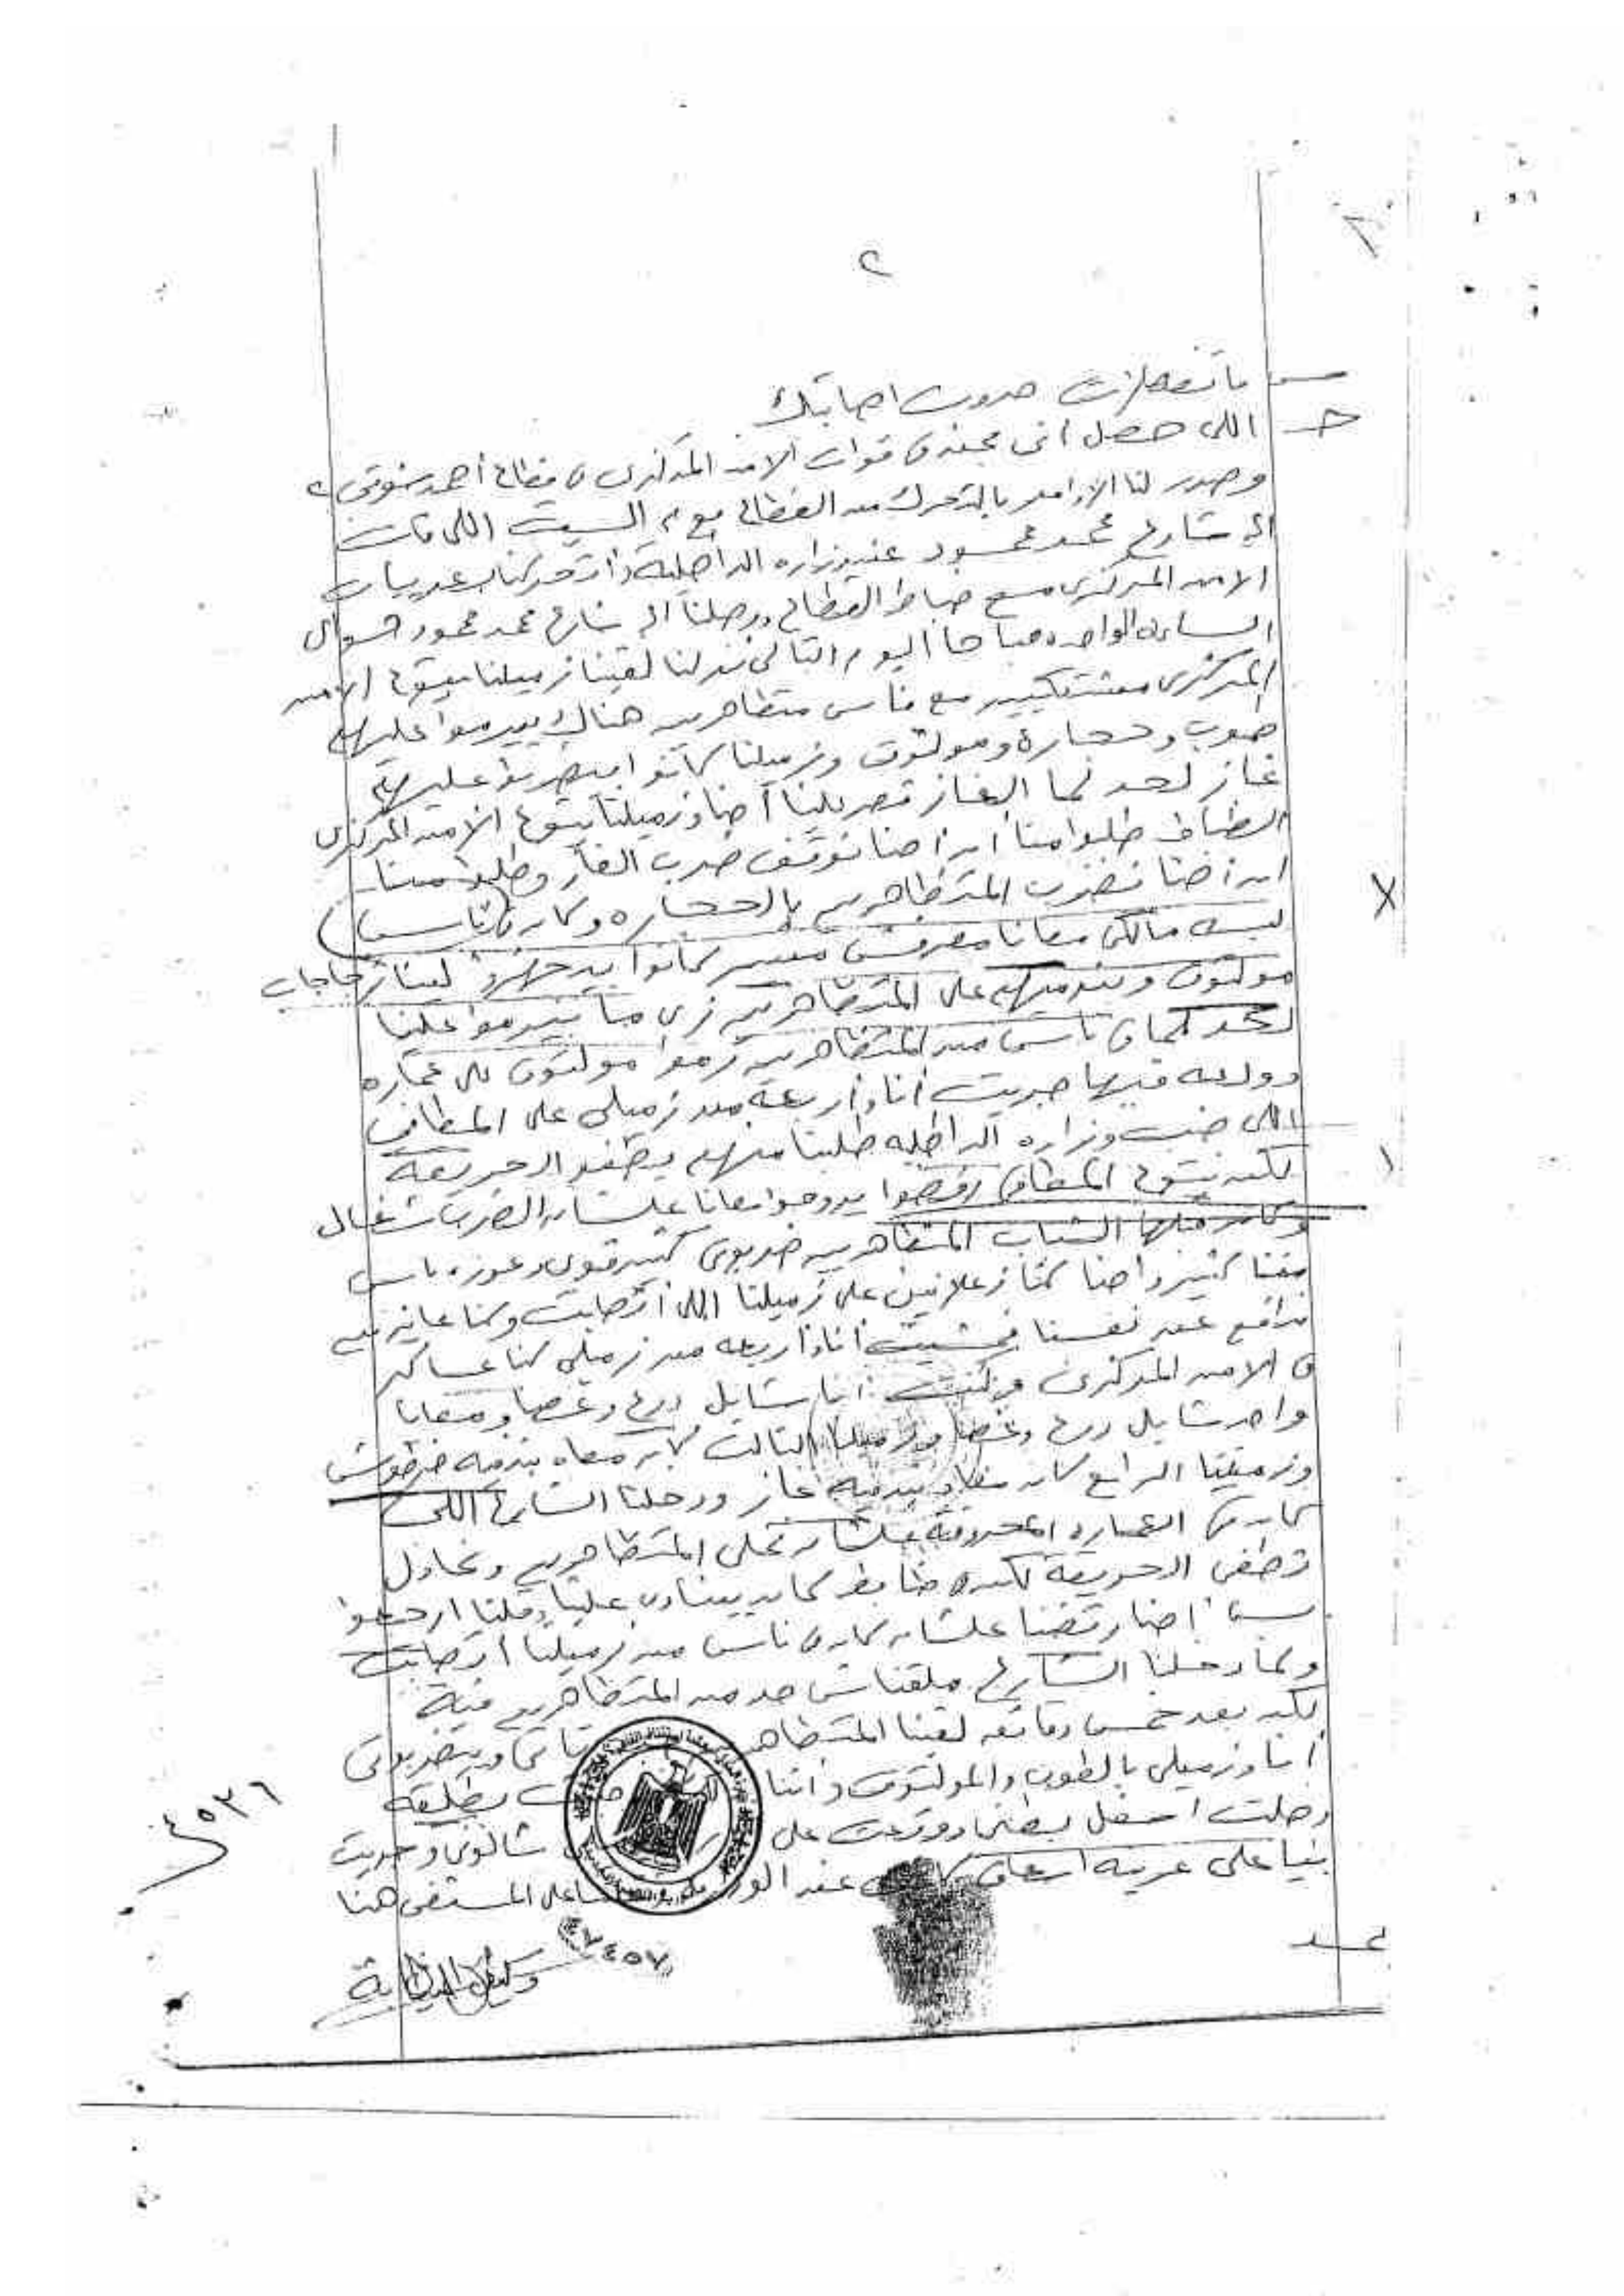 ٢
س ما تفصيلات حدوث اصابتك
جـ اللى حصل انى مجند فى قوات الامن المركزى فى قطاع أحمد شوقى
وصدر لنا الاوامر بالتحرك من القطاع يوم السبت اللى فات
الى شارع محمد محمود عند وزاره الداخلية واتحركنا بعربيات
الامن المركزى مع ضباط القطاع ووصلنا الى شارع محمد محمود حوالى
الساعه الواحده صباحا اليوم التالى نزلنا لقينا زميلنا بتوع الامن
المركزى مشتبكين مع ناس متظاهرين هناك بيرموا عليهم
طوب وحجارة ومولتوف وزميلنا كانوا بيضربوا عليهم
غاز لحد لما الغاز احنا وزميلنا بتوع الامن المركزى
الظباط طلبوا مننا ان احنا نوقف ضرب الغاز وطلبوا مننا
ان احنا نضرب المتظاهرين بالحجاره وكان فى ناس
لبسه مالكى معانا معرفش مين كانوا بيجهزوا لينا زجاجات
مولتوف ونرميهم على المتظاهرين زى ما بيرموا علينا
لحد لما فى ناس من المتظاهرين رموا مولتوف على عماره
وولعه فيها جريت أنا واربعة من زميلى على المطافى
اللى جنب وزاره الداخليه طلبنا منهم يطفوا الحريقة
لكن بتوع المطافى رفضوا يروحوا معانا علشان الضرب شغال
وكان الشباب المتظاهرين ضربونى كتير قوى وعوره ناس
مننا كتير واحنا كنا زعلانين على زميلنا اللى اتصابت وكنا عايزين
ندافع عن نفسنا فمشيت انا واربعه من زميلى كنا عساكر
فى الامن المركزى وكنت انا شايل درع وعصا ومعايا
واحد شايل درع وعصا وزميلنا التالت كان معاه بندقيه خرطوش
وزميلنا الرابع كان معاه بندقيه غاز ودخلنا الشارع اللى
كان فى العماره المحروقة علشان نخلى المتظاهرين ونحاول
نطفى الحريقة لكن ظابط كان بينادى علينا وقلنا ارجعوا
بس احنا رفضنا علشان كان فى ناس من زميلنا اتصابت
ولما دخلنا الشارع ملقناش حد من المتظاهرين فيه
لكن بعد خمس دقائق لقينا المتظاهر وبيضربونى
أنا وزميلى بالطوب والمولتوف واثنا بطلقه
دخلت اسفل بطنى ووقعت على شالونى وجريت
بنيا على عربيه اسعاف عند على المستشفى هنا
٤٥٣٦
٤٥٧
وكيل النيابة